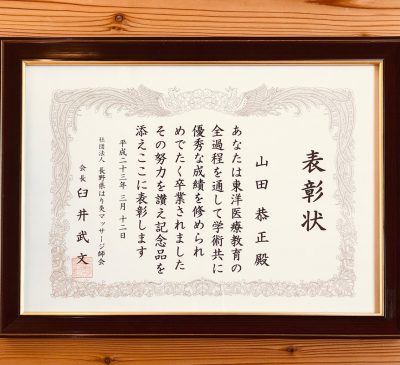 表彰状
山田恭正殿
あなたは東洋医療教育の
全過程を通して学術共に
優秀な成績を修められ
めでたく卒業されました
その努力を讃え記念品を
添えここに表彰します
平成二十三年 三月 十二日
社団法人 長野県はり灸マッサージ師会
会長 臼井武文